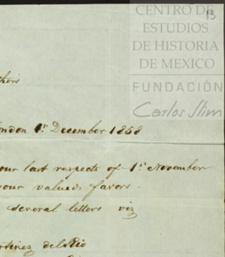 CENTRO DE
ESTUDIOS
DE HISTORIA
DE MEXICO
FUNDACIÓN
Carlos Slim
13
thers
ondon 1st December 1868
our last respects of 1st November
your valued favors.
several letters viz
artinez del Rio